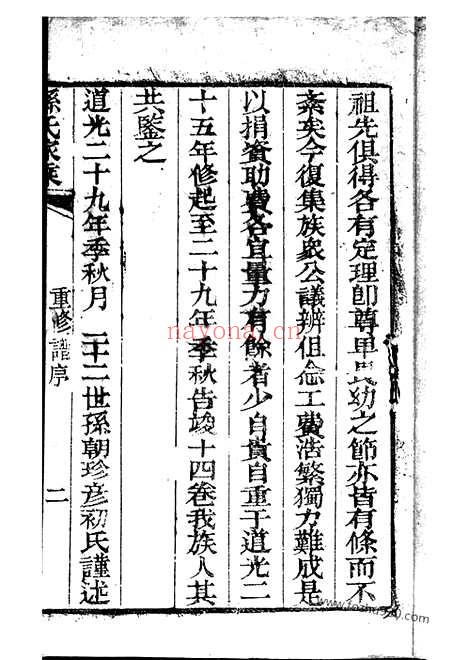 祖先俱得各有定理卽尊卑長幼之節亦皆有條而不
紊矣今復集族衆公議辦但念工費浩繁獨力難成是
以捐資助費各宜量力有餘者少自貴自重于道光二
十五年修起至二十九年季秋告竣十四卷我族人其
共鑒之
道光二十九年季秋月 二十二世孫朝珍彥初氏謹述
孫氏家乘
重修譜序
二
nayona.cn